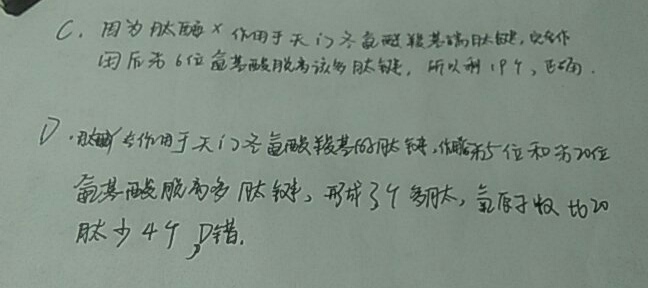 C. 因为肽酶X作用于天门冬氨酸羧基端肽键,完全作
用后第6位氨基酸脱离该多肽链,所以剩19个,正确.
D.肽酶Y作用于天门冬氨酸羧基的肽键,作用第5位和第20位
氨基酸脱离多肽链,形成3个多肽,氧原子数比20
肽少4个,D错.